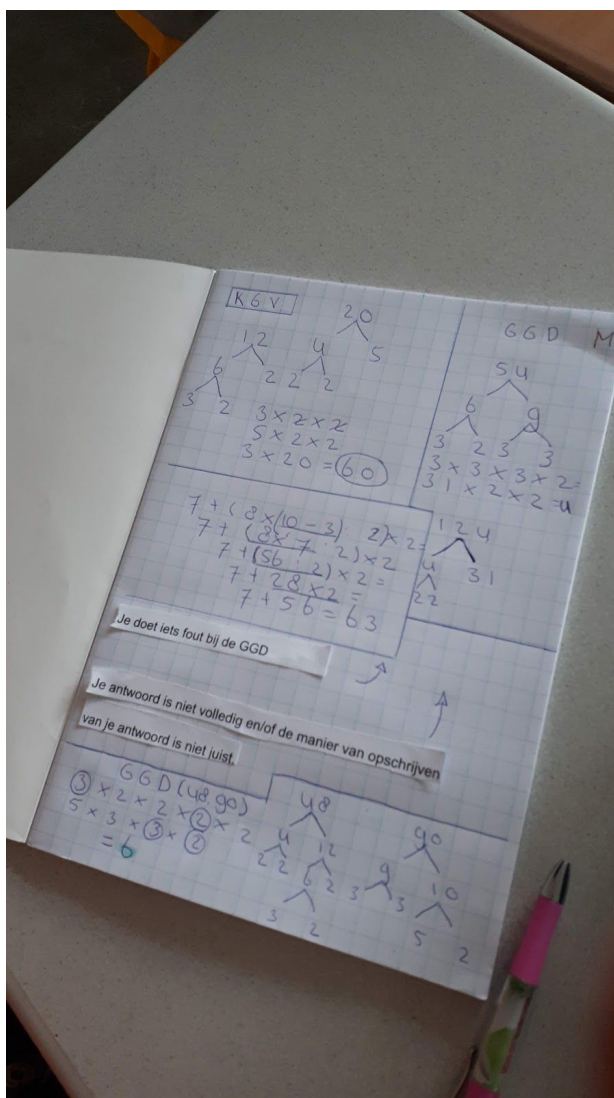 K G V
20
12 4 5
6 2 2 2
3 2
3 × 2 × 2
5 × 2 × 2
3 × 20 = 60
GGD M
54
6 9
3 2 3 3
3 × 3 × 3 × 2 =
31 × 2 × 2 = 4
124
4 31
2 2
7 + (8 × (10 - 3) : 2) × 2 =
7 + (8 × 7 : 2) × 2
7 + (56 : 2) × 2 =
7 + 28 × 2 =
7 + 56 = 63
Je doet iets fout bij de GGD
Je antwoord is niet volledig en/of de manier van opschrijven
van je antwoord is niet juist.
GGD (48, 90)
3 × 2 × 2 × 2 × 2
5 × 3 × 3 × 2
= 6
48
4 12
2 2 6 2
3 2
90
9 10
3 3 5 2